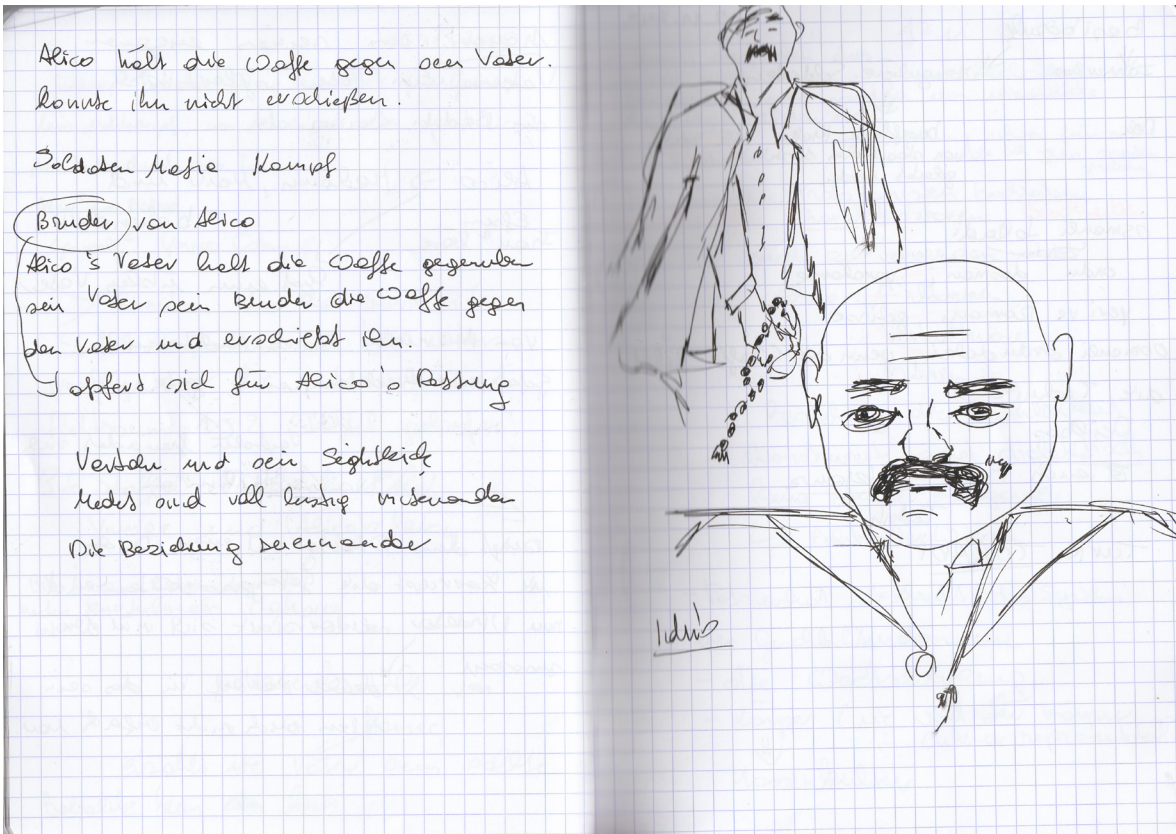 Alico hält die Waffe gegen sein Vater.
konnte ihn nicht erschießen.
Soldaten Mafia Kampf
Bruder von Alico
Alico's Vater halt die Waffe gegenuber
sein Vater sein Bruder die Waffe gegen
den Vater und erschießt ihn.
opferd sich für Alico's Rettung
und sein Sightkick
sind voll lustig miteinander
Die Beziehung